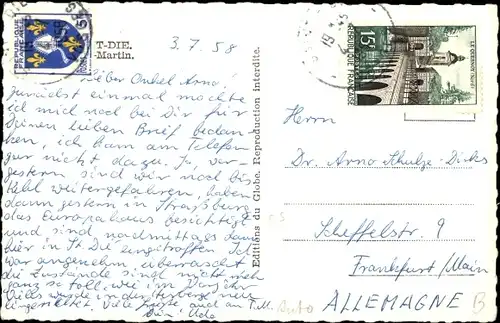 T-DIE.
-Martin.
3.7.58
Lieber Onkel Arno!
zunächst einmal möchte
ich mich noch bei Dir für
Deinen lieben Brief bedan-
ken, ich kam am Telefon
gar nicht dazu. Ja, vor-
gestern sind wir noch bis
Kehl weitergefahren, haben
dann gestern in Straßburg
das Europahaus besichtigt
und sind nachmittags dann
hier in St Die eingetroffen. Ich
war angenehm überrascht
die Zustände sind nicht mehr
ganz so toll, wie im Vorjahr
Vieles wurde in der neu
eingerichtet. Viele Grüße auch an T.
Dein Udo
Editions du Globe. Reproduction interdite.
REPUBLIQUE
FRANÇAISE
15F
LE QUESNOY (NORD)
REPUBLIQUE FRANÇAISE
Herrn
Dr. Arno Schulze-Dicks
Scheffelstr. 9
Frankfurt/Main
ALLEMAGNE
Auto
B